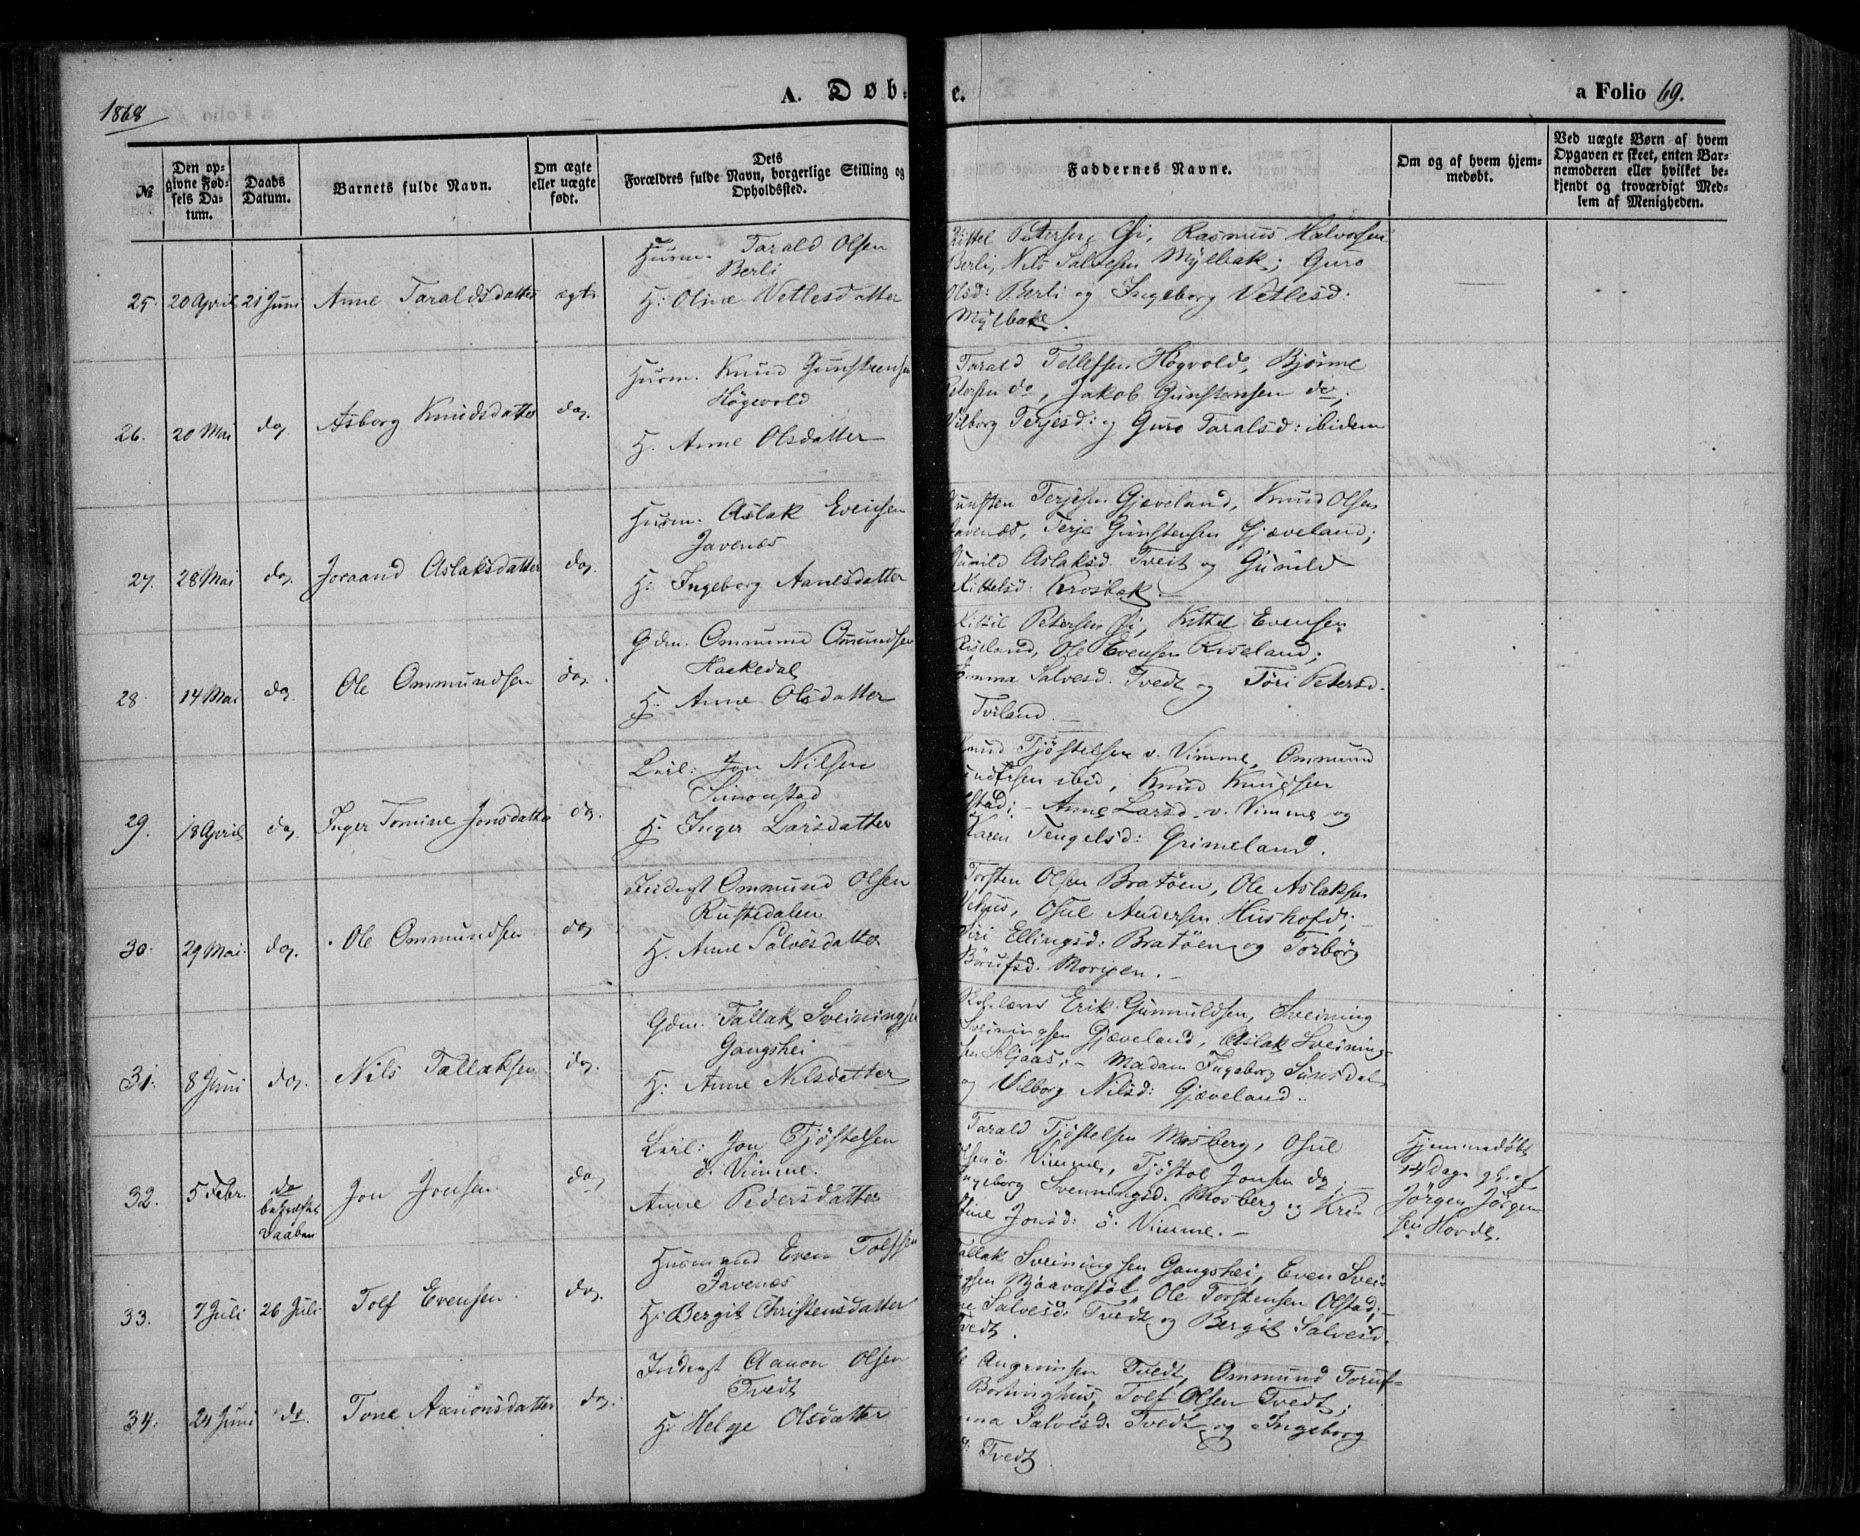 1868
A. Døb- e.
a Folio 69.
№
Den op-
givne Fød-
sels Da-
tum.
Daabs
Datum.
Barnets fulde Navn.
Om ægte
eller uægte
født.
Dets
Forældres fulde Navn, borgerlige Stilling og
Opholdssted.
Faddernes Navne.
Om og af hvem hjem-
medøbt.
Ved uægte Børn af hvem
Opgaven er skeet, enten Bar-
nemoderen eller hvilket be-
kjendt og troværdigt Med-
lem af Menigheden.
25. 20 April 21 Juni Anne Taraldsdatter ægte
Husm. Tarald Olsen
Berli
H: Oline Vetlesdatter
Kittel Petersen Øi, Rasmus Halvorsen
Berli, Nils Salvesen Mylbak; Guro
Olsd: Berli og Ingeborg Vetlesd:
Mylbak.
26. 20 Mai do, Asborg Knudsdatter do,
Husm. Knud Gunstensen
Høgevold
H. Anne Olsdatter
Tarald Tellefsen Høgvold, Bjørne
Petersen do, Jakob Gunstensen do;
Vilborg Terjesd: og Guro Taralsd: ibidem
27. 28 Mai do, Joraand Aslaksdatter do,
Husm. Aslak Evensen
Javenes
H: Ingeborg Aanesdatter
Gunsten Terjesen Gjeveland, Knud Olsen
Javenes, Terje Gunstensen Gjæveland;
Gunild Aslaksd. Tveit og Gunild
Kittelsd: Krosbak.
28. 14 Mai do, Ole Ommundsen do,
Gdm. Ommund Omundsen
Haakedal
H. Anne Olsdatter
Kittil Petersen Øi, Kittel Evensen
Riseland, Ole Evensen Riseland;
Salvesd. Tvedt og Tori Petersd.
Tviland.
29. 18 April do, Inger Tomine Jonsdatter do,
Leil: Jon Nilsen
Simonstad
H. Inger Larsdatter
Knud Tjøstelsen v. Vimme, Ommund
ibid, Knud Knudsen
Olstad; - Anne Larsd. v. Vimme og
Karen Tengelsd: Grimeland.
30. 29 Mai do, Ole Ommundsen do,
Inderst Ommund Olsen
Rustedalen
H. Anne Salvesdatter
Torsten Olsen Bratøen, Ole Aslaksen
Vehus, Osul Andersen Hushofd;
Siri Ellingsd: Bratøen og Torbør
31. 8 Juni do, Nils Tallaksen do,
Gdm. Tallak Sveiningsen
Gangshei
H: Anne Nilsdatter
Erik Gunnuldsen, Sveining
Sveiningsen Gjæveland, Aslak Sveining-
sen - Madam Ingeborg Sunsdal
og Vilborg Nilsd: Gjæveland.
32. 5 Febr. do
bekræftet
Daaben
Jon Jonsen do,
Leil: Jon Tjøstelsen
ø. Vimme.
Anne Pedersdatter
Tarald Tjøstelsen Mosberg, Osul
Olsen ø. Vimme, Tjøstol Jonsen do;
Ingeborg Svenningsd. Mosberg og Kri-
stine Jonsd: ø. Vimme.
Hjemmedøbt
14 Dage gl. af
Jørgen Jørgen-
sen Hovde.
33. 7 Juli 26 Juli Tolf Evensen do,
Husmand Even Tolfsen
Javenes
H: Bergit Christensdatter
Tallak Sveiningsen Gangshei, Even Svei-
ningsen Mjaavastøl, Ole Torstensen Olstad;
Salvesd. Tvedt og Bergit Salvesd.
Tvedt.
34. 24 Juni do. Tone Aanonsdatter do,
Inderst Aanon Olsen
Tvedt
H: Helge Olsdatter
Tvedt, Ommund
Tolf Olsen Tvedt;
Salvesd. Tvedt og Ingeborg
Tvedt